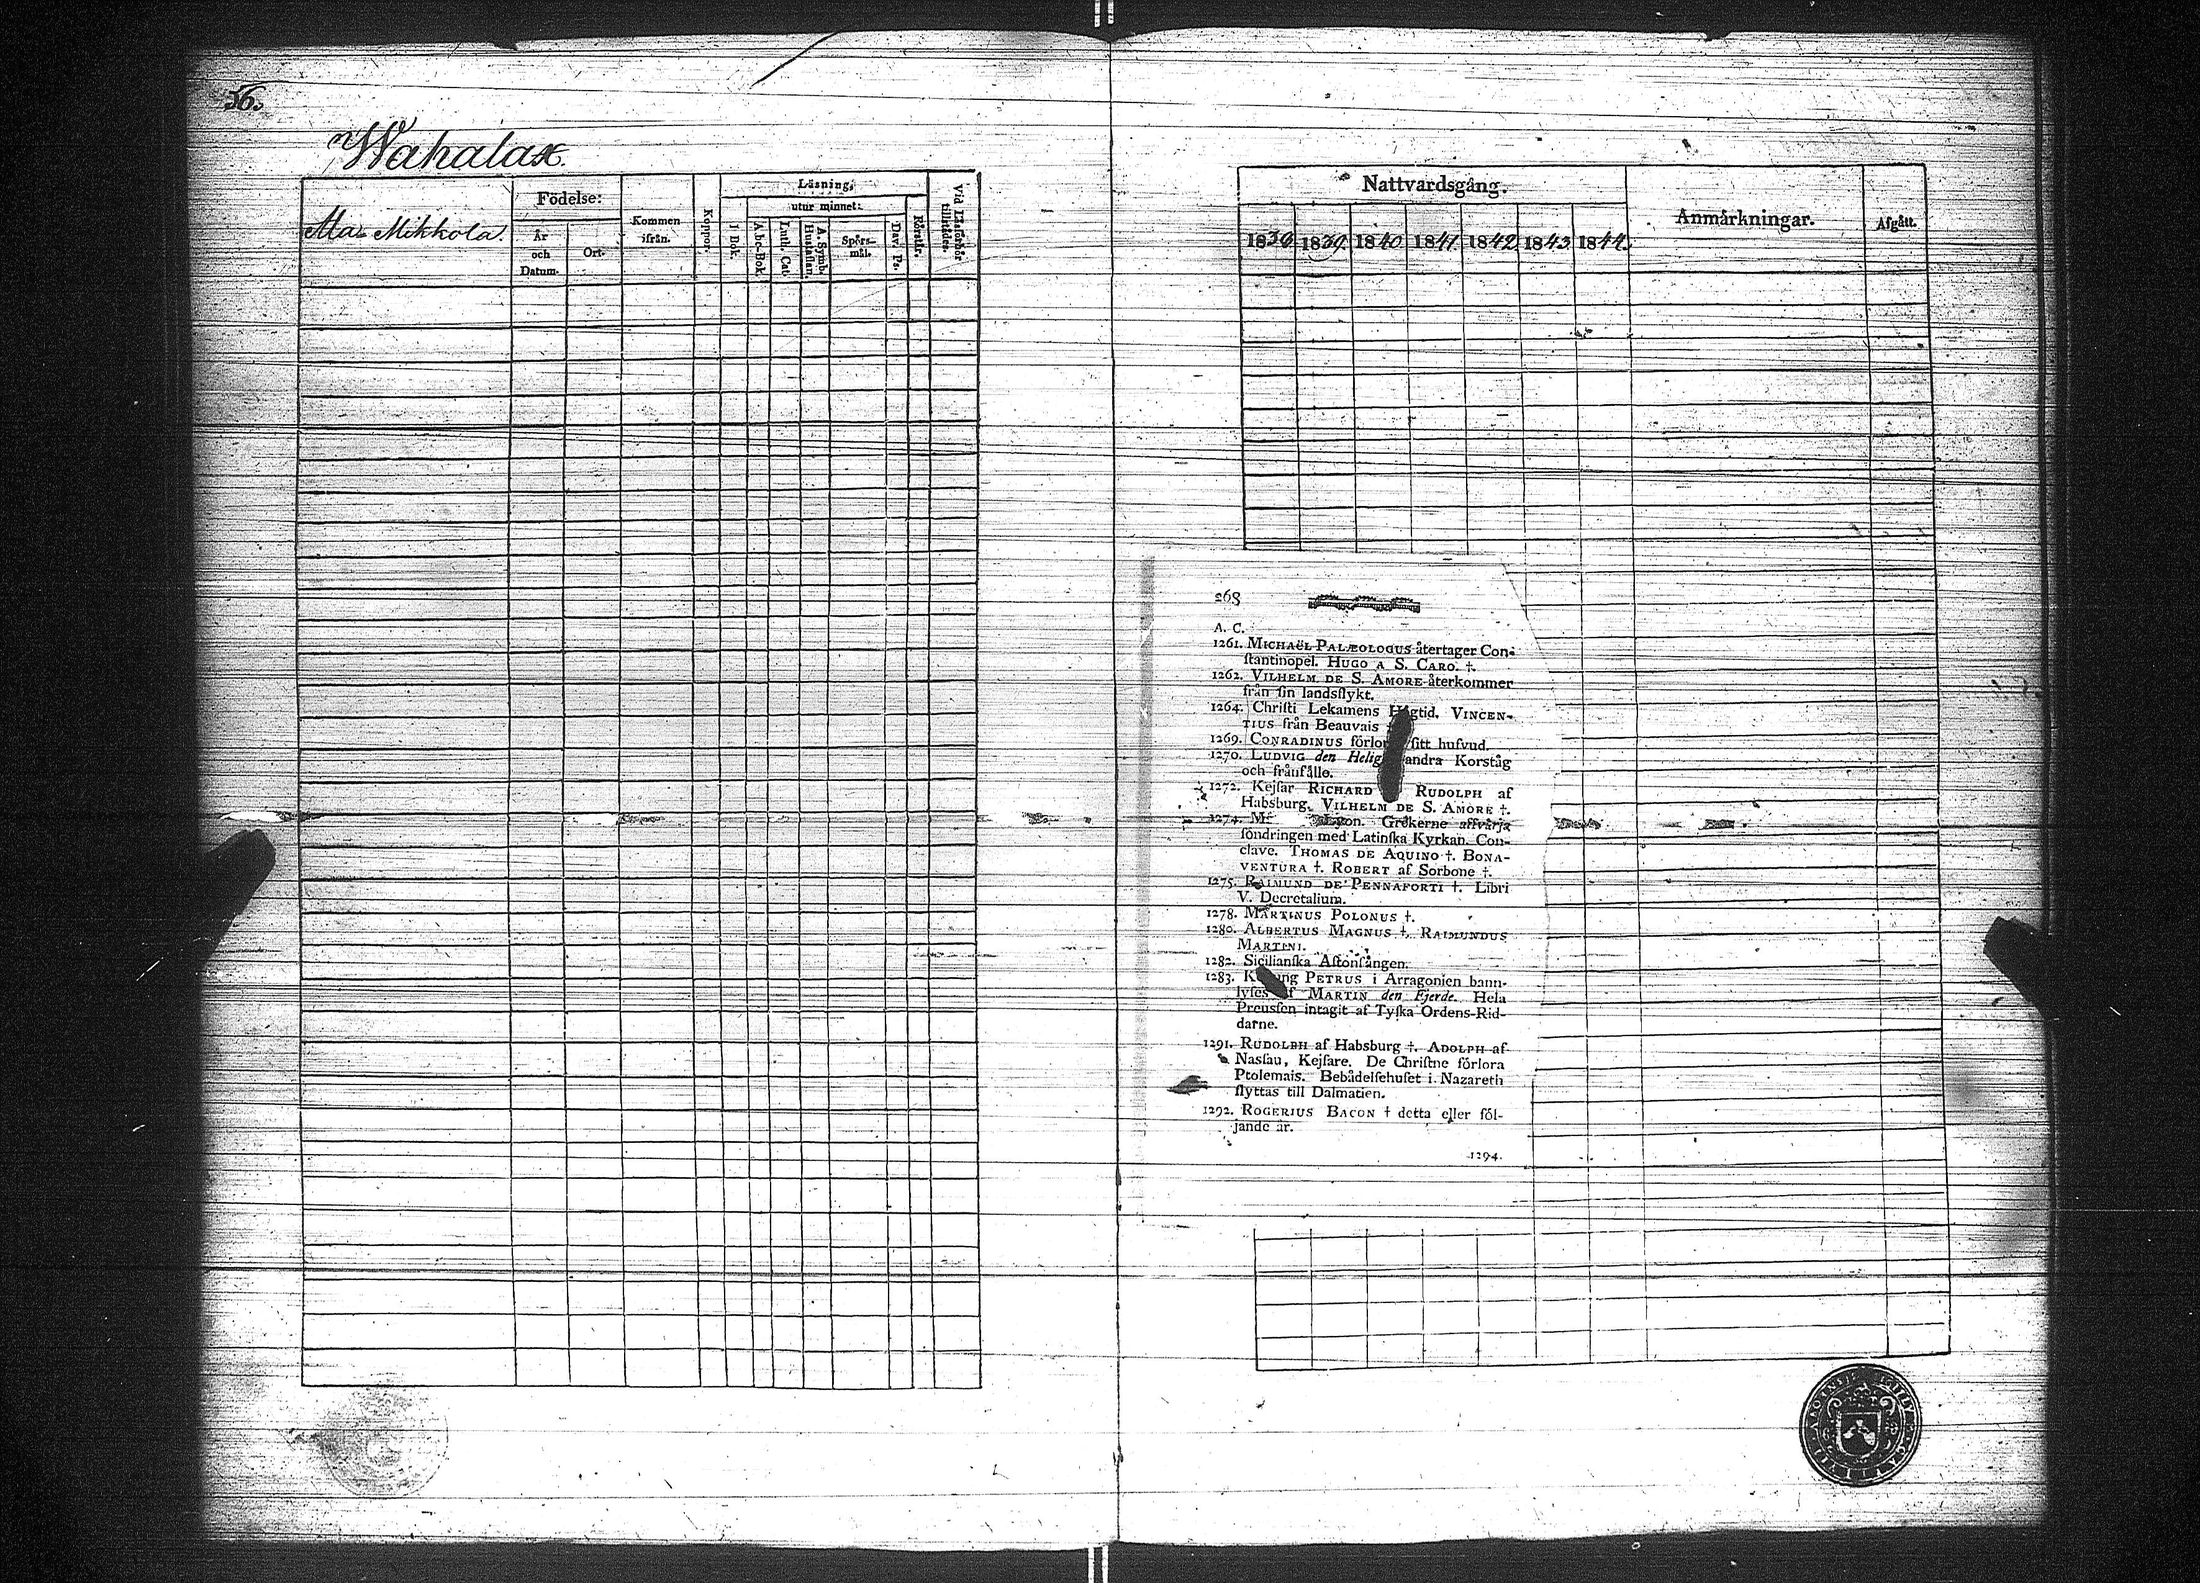 56.
Wahalax.
Ala Mikkola.
Födelse:
År
och
Datum.
Ort.
Kommen
ifrån.
Koppor.
Läsning,
utur minnet:
I Bok.
Abc-Bok.
Luth. Cat.
A. Symb.
Hustaflan.
Spörs-
mål.
Dav. Ps.
Vid Läsförhör
tillstädes.
Nattvardsgång.
1839 1839. 1840 1841. 1842. 1843 1844.
Anmärkningar.
Afgått.
268
A. C.
1261. MICHAËL PALÆOLOGUS återtager Con-
ſtantinopel. HUGO A S. CARO. †.
1262. VILHELM DE S. AMORE återkommer
från ſin landsflykt.
1264. Chriſti Lekamens Högtid. VINCEN-
TIUS från Beauvais †
1269. CONRADINUS förlor ſitt hufvud.
1270. LUDVIG den Helig andra Korståg
och frånfälle.
1272. Kejſar RICHARD RUDOLPH af
Habsburg. VILHELM DE S. AMORE †.
1274. M Lyon. Grekerne affvärja
föndringen med Latinſka Kyrkan. Con-
clave. THOMAS DE AQUINO †. BONA-
VENTURA †. ROBERT af Sorbone †.
1275. RAIMUND DE PENNAFORTI †. Libri
V. Decretalium.
1278. MARTINUS POLONUS †.
1280. ALBERTUS MAGNUS †. RAIMUNDUS
MARTINI.
1282. Sicilianſka Aftonſången.
1283. Konung PETRUS i Arragonien bann-
lyſes af MARTIN den Fjerde. Hela
Preuſſen intagit af Tyſka Ordens-Rid-
darne.
1291. RUDOLPH af Habsburg †. ADOLPH af
Naſſau, Kejſare. De Chriſtne förlora
Ptolemais. Bebådelſehuſet i Nazareth
flyttas till Dalmatien.
1292. ROGERIUS BACON † detta eller föl-
jande år.
1294.